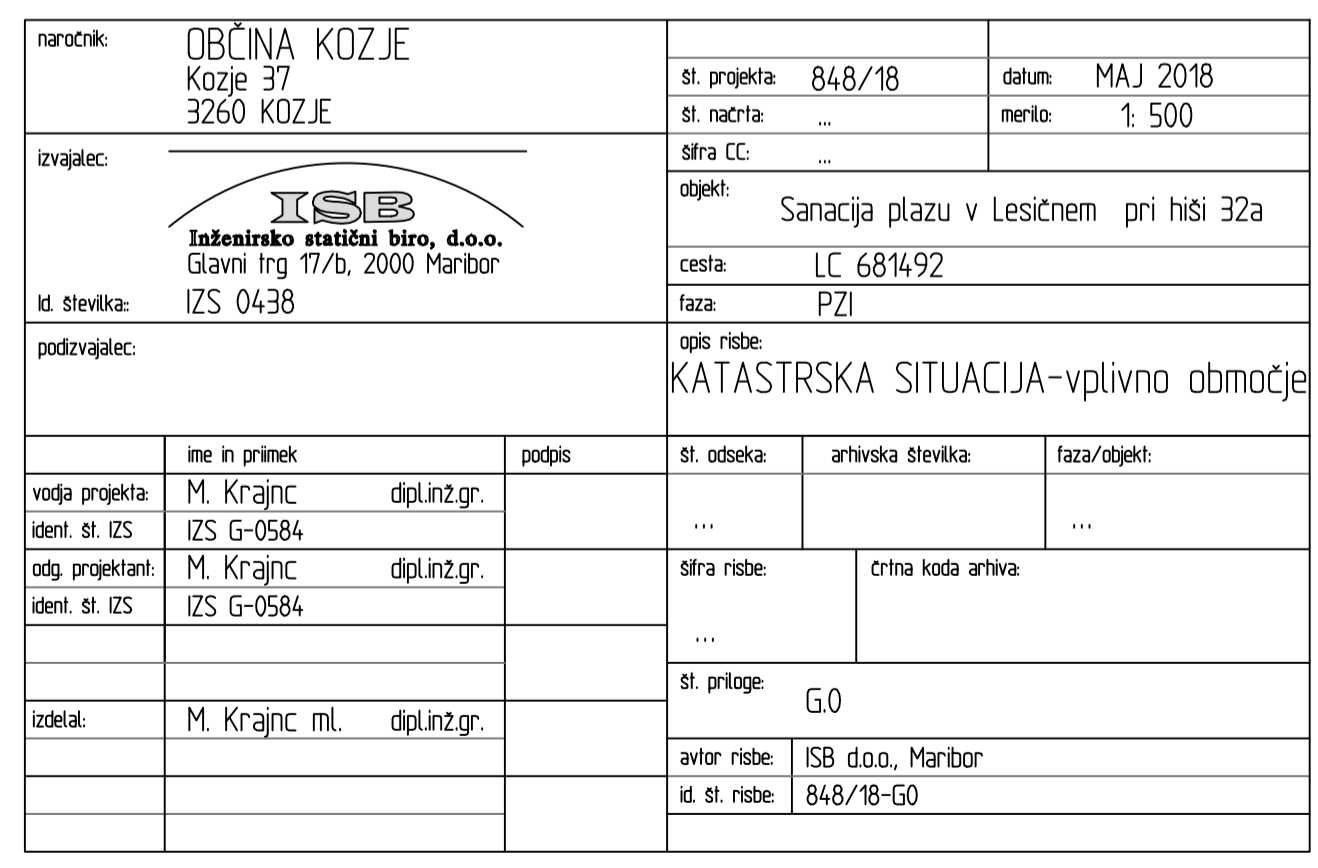 naročnik: OBČINA KOZJE
Kozje 37
3260 KOZJE
izvajalec:
ISB
Inženirsko statični biro, d.o.o.
Glavni trg 17/b, 2000 Maribor
Id. številka:: IZS 0438
podizvajalec:
ime in priimek podpis
vodja projekta: M. Krajnc dipl.inž.gr.
ident. št. IZS IZS G-0584
odg. projektant: M. Krajnc dipl.inž.gr.
ident. št. IZS IZS G-0584
izdelal: M. Krajnc ml. dipl.inž.gr.
št. projekta: 848/18 datum: MAJ 2018
št. načrta: ... merilo: 1: 500
šifra CC: ...
objekt:
Sanacija plazu v Lesičnem pri hiši 32a
cesta: LC 681492
faza: PZI
opis risbe:
KATASTRSKA SITUACIJA-vplivno območje
št. odseka: arhivska številka: faza/objekt:
... ...
šifra risbe: črtna koda arhiva:
...
št. priloge:
G.0
avtor risbe: ISB d.o.o., Maribor
id. št. risbe: 848/18-G0